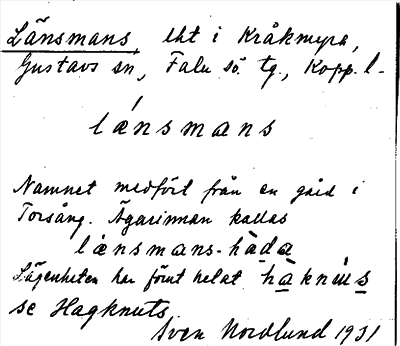 Länsmans, lht i Kråkmyra,
Gustavs sn, Falu sö. tg., Kopp. l-
lánsmans
Namnet medfört från en gård i
Torsång. Ägarinnan kallas
lánsmans-hàda
Lägenheten har förut hetat hàknùs
se Hagknuts.
Sven Nordlund 1931